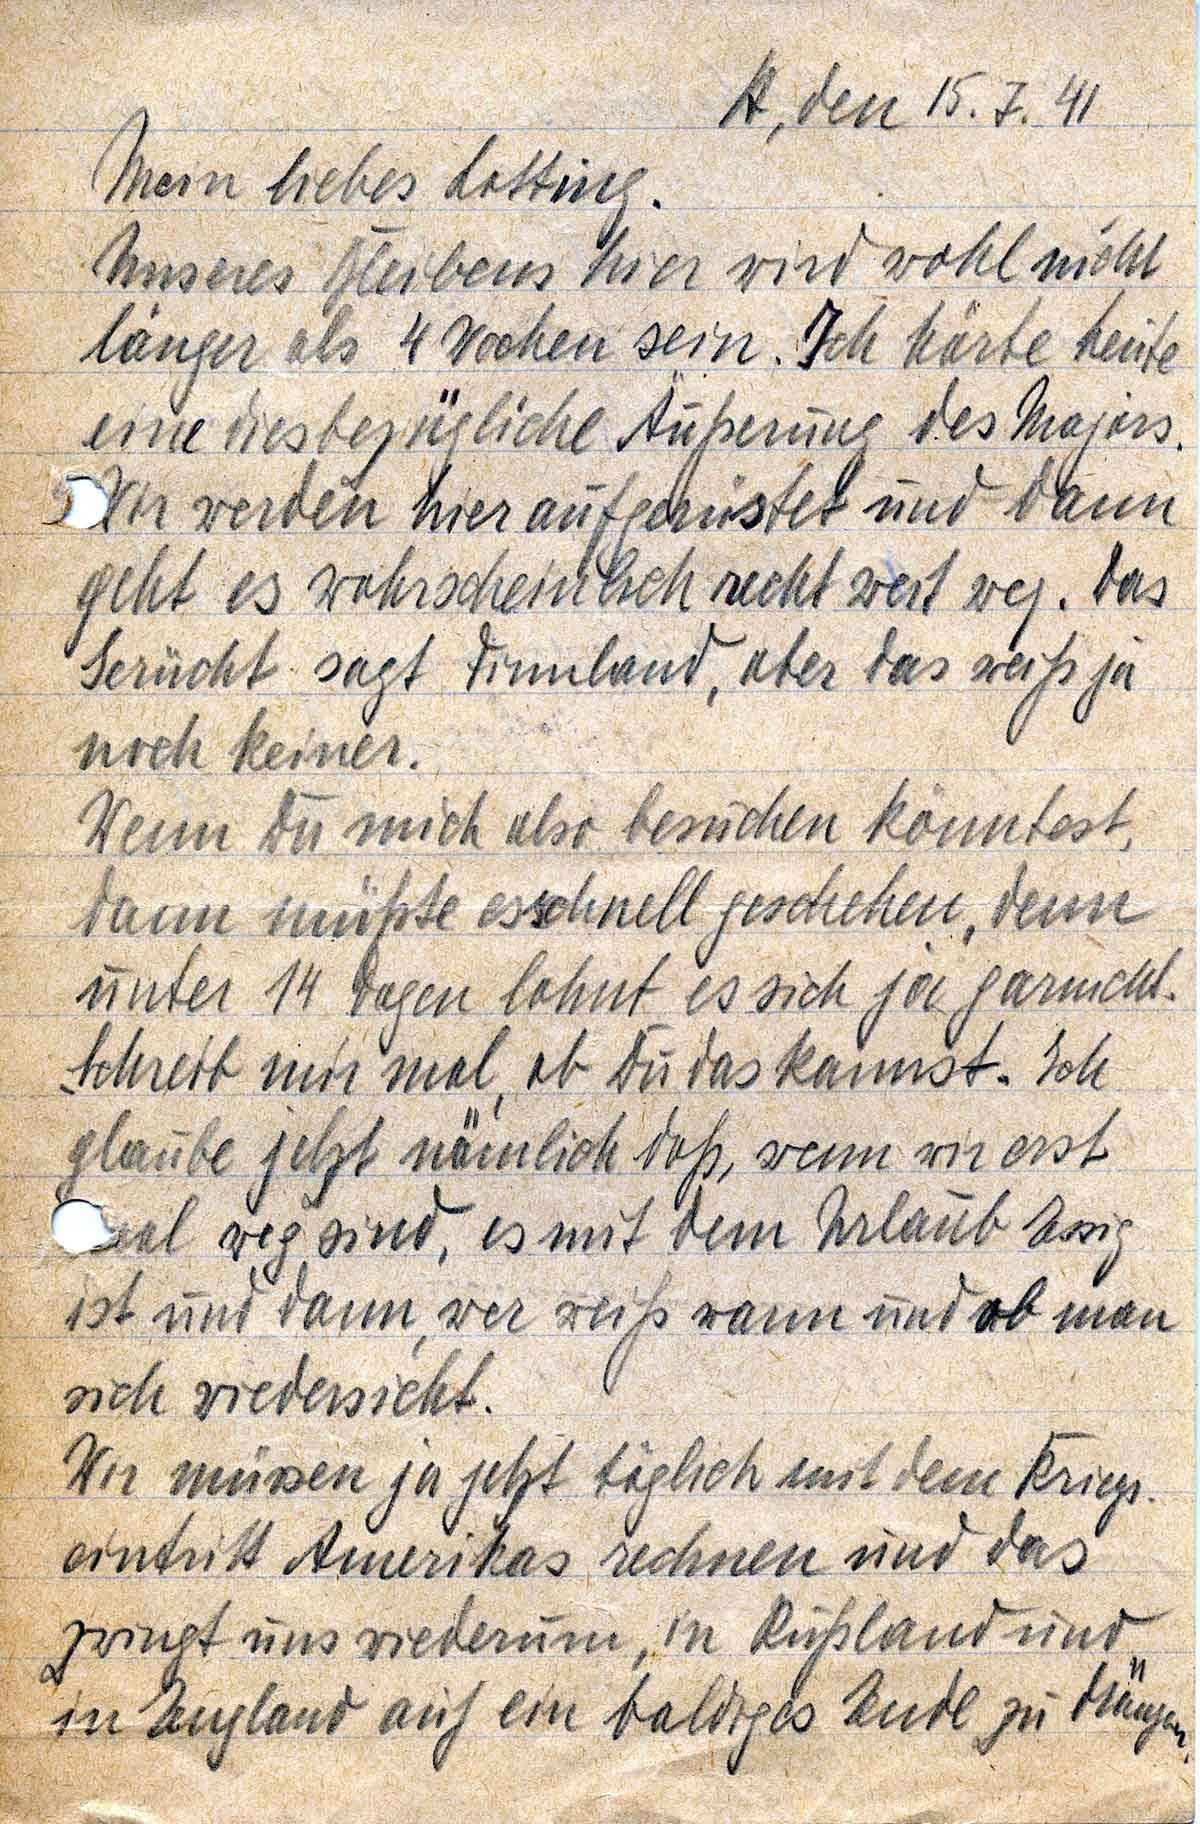 A, den 15. 7. 41
Mein liebes Lotting.
Unseres Bleibens hier wird wohl nicht
länger als 4 Wochen sein. Ich hörte heute
eine diesbezügliche Äußerung des Majors.
Wir werden hier aufgerüstet und dann
geht es wahrscheinlich recht weit weg. Das
Gerücht sagt Finnland, aber das weiß ja
noch keiner.
Wenn Du mich also besuchen könntest,
dann müßte es schnell geschehen, denn
unter 14 Tagen lohnt es sich ja garnicht.
Schreib mir mal, ob Du das kannst. Ich
glaube jetzt nämlich daß, wenn wir erst
mal weg sind, es mit dem Urlaub Essig
ist und dann, wer weiß wann und ob man
sich wiedersieht.
Wir müssen ja jetzt täglich mit dem Kriegs-
eintritt Amerikas rechnen und das
zwingt uns wiederum, in Rußland und
in England auf ein baldiges Ende zu drängen.